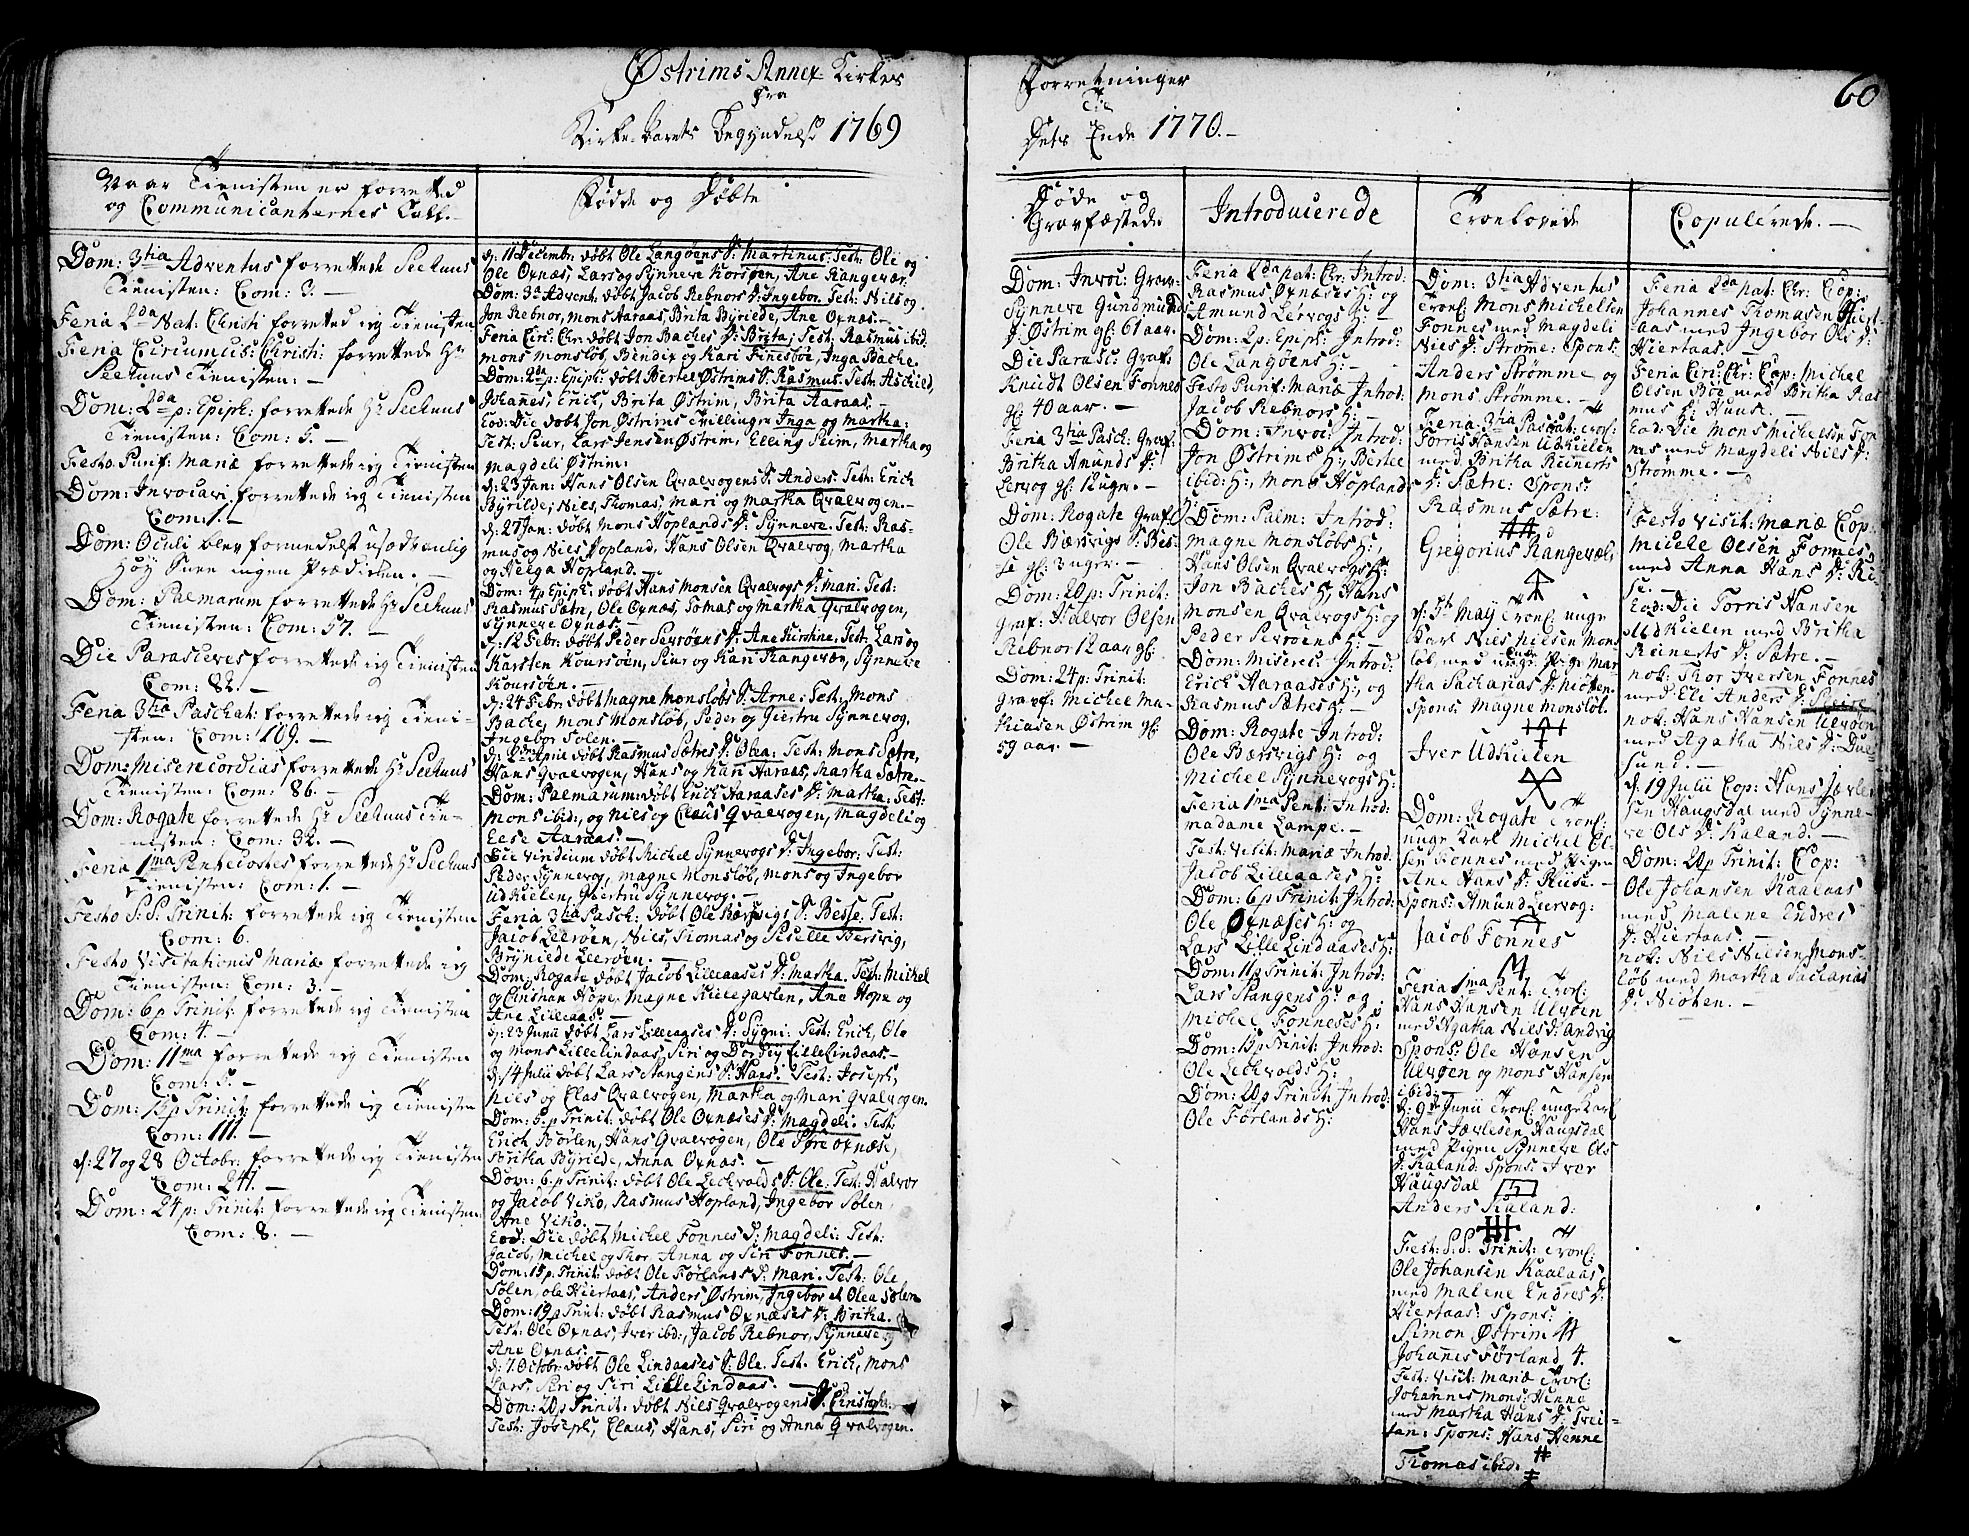 Østrims Annex-Kirkes
fra
Kirke-Aarets Begyndelse 1769
Forretninger
Til
Dets Ende 1770.-
60
Naar Tienisten er forretted
og Communicanternes Tall.-
Dom: 3tia Adventus forrettede Seehuus
Tienisten: Com: 3. -
Feria 2da Nat: Christi forretted ieg Tienisten
Feria Circumcis: Christi: forrettede Hr
Seehuus Tienisten: -
Dom: 2da p: Epiph: forrettede Hr Seehuus
Tienisten: Com: 5. -
Festo Purif: Mariæ forrettede ieg Tienisten
Dom: Invocavi forrettede ieg Tienisten
Com: 1. -
Dom: Oculi blev formedelst usædvanlig
høy Snee ingen Prædiken. -
Dom: Palmarum forrettede Hr Seehuus
Tienisten: Com: 57. -
Die Parasceves forrettede ieg Tienisten
Com: 82. -
Feria 3tia Paschat: forrettede ieg Tieni-
sten: Com: 109. -
Dom: Misericordias forrettede Hr Seehuus
Tienisten: Com: 86. -
Dom: Rogate forrettede Hr Seehuus Tie-
nisten: Com: 32. -
Feria 1ma Pentecostes forrettede Hr Seehuus
Tienisten: Com: 1. -
Festo S.S. Trinit: forrettede ieg Tienisten
Com: 6.
Festo Visitationis Mariæ forrettede ieg
Tienisten: Com: 3. -
Dom: 6 p Trinit: forrettede ieg Tienisten
Com: 4. -
Dom: 11ma forrettede ieg Tienisten
Com: 5. -
Dom: 15 p Trinit: forrettede ieg Tienisten
Com: 111. -
d: 27 og 28 Octobr: forrettede ieg Tienisten
Com: 241. -
Dom: 24 p: Trinit: forrettede ieg Tienisten
Com: 8. -
Fødde og Døbte
d: 11 Decembr: døbt Ole Langøens S: Martinus: Test: Ole og
Ole Oxnæs, Lars og Synneve Korsøen, Ane Rangevær.
Dom: 3a Advent: døbt Jacob Rebnors D: Ingebor. Test: Niels og
Jon Rebnor, Mons Aaraas, Brita Byriede, Ane Oxnæs. -
Feria Circ: Chr: døbt Jon Baches D: Brita; Test: Rasmus ibid:
Mons Monsløb, Bendix og Kari Finesbøe, Inga Bache.
Dom: 2da p: Epiph: døbt Bertel Østrims S: Rasmus. Test: Aschild,
Johannes, Erich, Brita Østrim, Brita Aaraas. -
Eod: Die døbt Jon Østrims Tvillinger Inga og Martha:
Test: Siur, Lars Jensen Østrim, Elling Seim, Martha og
Magdeli Østrim:
d: 23 Jan: Hans Olsen Qvalvogens S: Anders: Test: Erich
Byrilde, Niels, Thomas, Mari og Martha Qvalvogen. -
d: 27 Jan: døbt Mons Hoplands D: Synneve. Test: Ras-
mus og Niels Hopland, Hans Olsen Qvalvog, Martha
og Helga Hopland. -
Dom: 4 p Epiph: døbt Hans Monsen Qvalvogs D: Mari. Test:
Rasmus Sætre, Ole Oxnæs, Tomas og Martha Qvalvogen,
Synneve Oxnæs. -
d: 12 Febr: døbt Peder Sexrøens D: Ane Kirstine. Test: Lars og
Karsten Koursøen, Siur og Kari Rangevær, Synneve
Koursøen. -
d: 24 Febr: døbt Magne Monsløbs S: Arne: Test: Mons
Bache, Mons Monsløb, Peder og Giertru Synnevog,
Ingebor Solen. -
d: 2den April døbt Rasmus Sætres D: Olea: Test: Mons Sætre,
Hans Qvalvogen, Hans og Kari Aaraas, Martha Sætre. -
Dom: Palmarum: døbt Erich Aaraases D: Martha: Test:
Mons ibid:, og Niels og Claus Qvalvogen, Magdeli og
Eese Aaraas. -
Die Viridium døbt Michel Synnevogs D: Ingebor: Test:
Peder Synnevog, Magne Monsløb, Mons og Ingebor
Udkielen, Giertru Synnevog. -
Feria 3tia Pasch: døbt Ole Bærsvigs S: Besse. Test:
Jacob Leerøen, Niels, Thomas og Siselle Bersvig,
Bryniede Leerøen. -
Dom: Rogate døbt Jacob Lilleaases D: Martha. Test: Michel
og Christian Hope, Magne Killegavlen, Ane Hope og
Ane Lilleaas. -
d: 23 Junii døbt Lars Lilleaases D: Sygni: Test: Erich, Ole
og Mons LilleLindaas, Siri og Dordey LilleLindaas. -
d: 14 Julii døbt Lars Stangens S: Hans. Test: Joseph,
Niels og Clas Qvalvogen, Martha og Mari Qvalvogen.
Dom: 5 p Trinit: døbt Ole Oxnæses D: Magdeli. Test:
Erich Børlen, Hans Qvalvogen, Ole Søre Oxnæse,
Britha Byriede, Anna Oxnæs. -
Dom: 6 p Trinit: døbt Ole Lechvolds S: Ole: Test: Halvor
og Jacob Vixo, Rasmus Hopland, Ingebor Solen,
Ane Vixo. -
Eod: Die døbt Michel Fonnes D: Magdeli: Test:
Jacob, Michel og Thor, Anna og Siri Fonnes. -
Dom: 15 p. Trinit: døbt Ole Førlands D: Mari. Test: Ole
Solen, Ole Hiertaas, Anders Østrim, Ingebor et Olea Solen
Dom: 19 p Trinit: døbt Rasmus Oxnæses D: Britha.
Test: Ole Oxnæs, Iver ibd:, Jacob Rebnor, Synneve og
Ane Oxnæs. -
d: 7 Octobr døbt Ole Lindaases S: Ole. Test. Erich, Mons
Lars, Siri og Siri LilleLindaas. -
Dom: 20 p Trinit: døbt Niels Qvalvogens S: Christoph:
Test: Joseph, Claus, Hans, Siri og Anna Qvalvogen.
Døde og
Gravfæstede
Dom: Invoc: Grav:
Synneve Gundmunds
D: Østrim gl: 61 aar.
Die Parasc: Graf:
Knudt Olsen Fonnes
gl: 40 aar. -
Feria 3tia Pasch: Graf:
Britha Amunds D:
Lervog gl: 12 uger. -
Dom: Rogate Graf:
Ole Bærsvigs S: Bes-
se gl: 3 uger. -
Dom: 20 p: Trinit:
Graf: Halvor Olsen
Rebnor 12 aar gl:
Dom: 24 p: Trinit:
Gravf: Michel Ma-
thiasen Østrim gl:
59 aar. -
Introducerede
Feria 2da nat: Chr: Introd:
Rasmus Oxnæses H: og
Amund Lervogs H: -
Dom: 2 p: Epiph: Introd:
Ole Langøens H: -
Festo Purif: Mariæ Introd:
Jacob Rebnors H: -
Dom: Invoc: Introd:
Jon Østrims H: Bertel
ibid: H: Mons Hoplands H:
Dom: Palm: Introd:
Magne Monsløbs H:,
Hans Olsen Qvalvogs H:
Jon Baches H: Hans
Monsen Qvalvogs H: og
Peder Sexrøens H: -
Dom: Miseric: Introd:
Erich Aaraases H: og
Rasmus Sætres H: -
Dom: Rogate Introd:
Ole Bærsvigs H: og
Michel Synnevogs H:
Feria 1ma Pent: Introd:
Madame Lampe. -
Test: Visit: Mariæ Introd:
Jacob Lilleaases H:
Dom: 6 p Trinit: Introd:
Ole Oxnæses H: og
Lars LilleLindaases H:
Dom: 11 p Trinit: Introd:
Lars Stangens H: og
Michel Fonneses H:
Dom: 15 p Trinit: Introd:
Ole Lechvolds H:
Dom: 20 p Trinit: Introd:
Ole Førlands H:
Troelovede
Dom: 3tia Adventus
Trol: Mons Michelsen
Fonnes med Magdeli
Niels D: Strømme: Spons:
Anders Strømme og
Mons Strømme. -
Feria: 3tia Paschat: Trol:
Torris Hansen Udkielen
med Britha Reinerts
D: Sætre: Spons:
Rasmus Sætre:
Gregorius Rangevær:
d: 5te May Trol: unge
Karl Niels Nielsen Mons
løb med unge Pige Mar-
tha Sacharias D: Niøten.
Spons: Magne Monsløb.
Iver Udkielen
Dom: Rogate Trol:
unge Karl Michel Ol-
sen Fonnes med Pigen
Ane Hans D: Riise. -
Spons: Amund Leervog:
Jacob Fonnes
Feria 1ma Pent: Trol:
Hans Hansen Ulvøen
med Agatha Niels D: Andvig
Spons: Ole Hansen
Ulvøen og Mons Hansen
ibid: -
d: 9de Junii Trol: unge Karl
Hans Jærlesen Haugsdal
med Pigen Synneve Ols
D: Kaland: Spons: Iver
Haugsdal
Anders Kaland:
Fest: S.S. Trinit: Trol:
Ole Johansen Kaalaas
med Malene Endres D:
Hiertaas: Spons:
Simon Østrim
Johannes Førland
Fest: Visit: Mariæ Trol:
Johannes Mons: Henne
med Martha Hans D: Trei-
tan: Spons: Hans Henne
Thomas ibid:
Copulerede. -
Feria 2da nat: Chr: Cop:
Johannes Thomasen Hiert-
aas med Ingebor Ols D:
Hiertaas. -
Feria Circ: Chr: Cop: Michel
Olsen Bøe med Britha Ras
mus D: Kusle. -
Eod: Die Mons Michelsen Fon
nes med Magdeli Niels D:
Strømme. -
Festo Visit: Mariæ Cop:
Michele Olsen Fonnes
med Anna Hans D: Ri-
se. -
Eod: Die Torris Hansen
Udkielen med Britha
Reinerts D: Sætre. -
nok: Thor Iversen Fonnes
med Eli Anders D:
nok: Hans Hansen Ulvøen
med Agatha Niels D: Due-
sund. -
d. 19 Julii Cop: Hans Jærle-
sen Haugsdal med Synne-
ve Ols D: Kaland. -
Dom: 20 p Trinit: Cop:
Ole Johansen Kaalaas
med Malene Endres
D: Hiertaas. -
nok: Niels Nielsen Mons-
løb med Martha Sacharias
D: Niøten. -